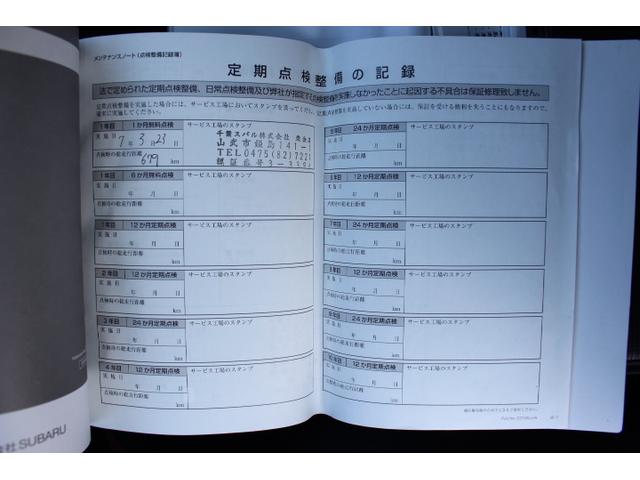 メンテナンスノート（点検整備記録簿）
定期点検整備の記録
法で定められた定期点検整備、日常点検整備及び弊社が指定する点検整備を実施しなかったことに起因する不具合は保証修理致しません。
定期点検を実施した場合には、サービス工場においてスタンプを貰ってください。定期点検を実施していない場合には、保証を受ける権利を失うこともなりますので、
確実に実施してください。
1年目 1か月無料点検 サービス工場のスタンプ
実施日
7年 3月 23日
点検時の総走行距離
679 km
千葉スバル株式会社
TEL0475(82)7221
1年目 6か月無料点検 サービス工場のスタンプ
実施日
年 月 日
点検時の総走行距離
km
1年目 12か月定期点検 サービス工場のスタンプ
実施日
年 月 日
点検時の総走行距離
km
2年目 12か月定期点検 サービス工場のスタンプ
実施日
年 月 日
点検時の総走行距離
km
3年目 24か月定期点検 サービス工場のスタンプ
実施日
年 月 日
点検時の総走行距離
km
4年目 12か月定期点検 サービス工場のスタンプ
実施日
年 月 日
点検時の総走行距離
km
24か月定期点検 サービス工場のスタンプ
実施日
年 月 日
点検時の総走行距離
km
12か月定期点検 サービス工場のスタンプ
実施日
年 月 日
点検時の総走行距離
km
24か月定期点検 サービス工場のスタンプ
実施日
年 月 日
点検時の総走行距離
km
12か月定期点検 サービス工場のスタンプ
実施日
年 月 日
点検時の総走行距離
km
24か月定期点検 サービス工場のスタンプ
実施日
年 月 日
点検時の総走行距離
km
12か月定期点検 サービス工場のスタンプ
実施日
年 月 日
点検時の総走行距離
km
会社 SUBARU